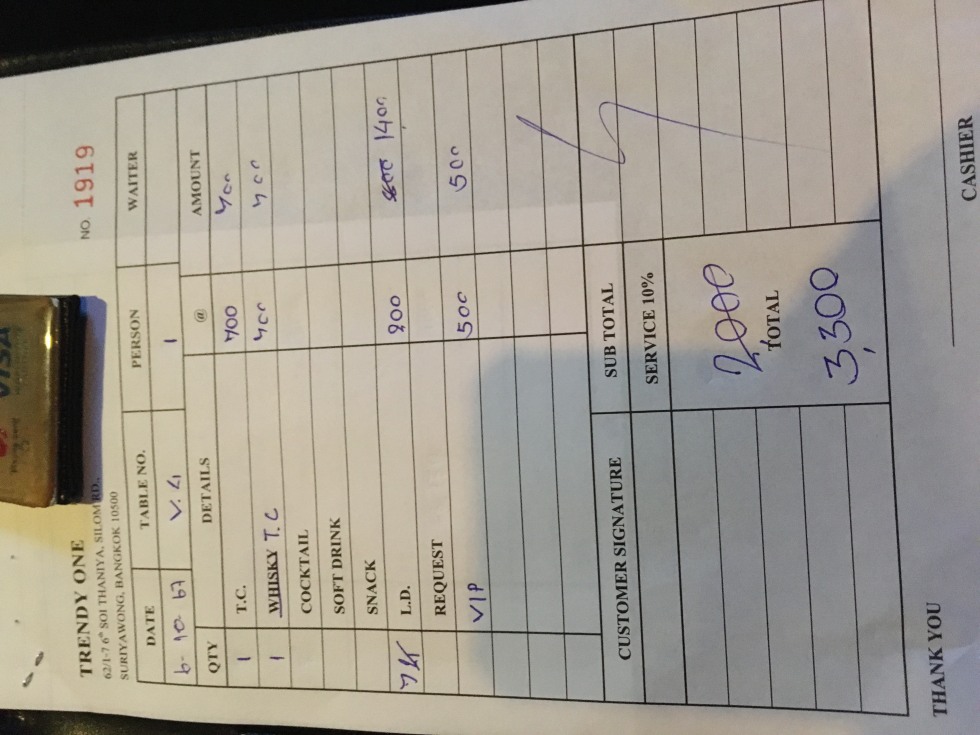 VISA
TRENDY ONE NO. 1919
62/1-7 6th SOI THANIYA, SILOM RD.,
SURIYAWONG, BANGKOK 10500
DATE TABLE NO. PERSON WAITER
1
QTY DETAILS @ AMOUNT
1 T.C. 700 700
1 WHISKY T.C 700 700
COCKTAIL
SOFT DRINK
SNACK
7 L.D. 200 1400
REQUEST
VIP 500 500
CUSTOMER SIGNATURE SUB TOTAL
SERVICE 10%
2000
TOTAL
3,300
THANK YOU CASHIER